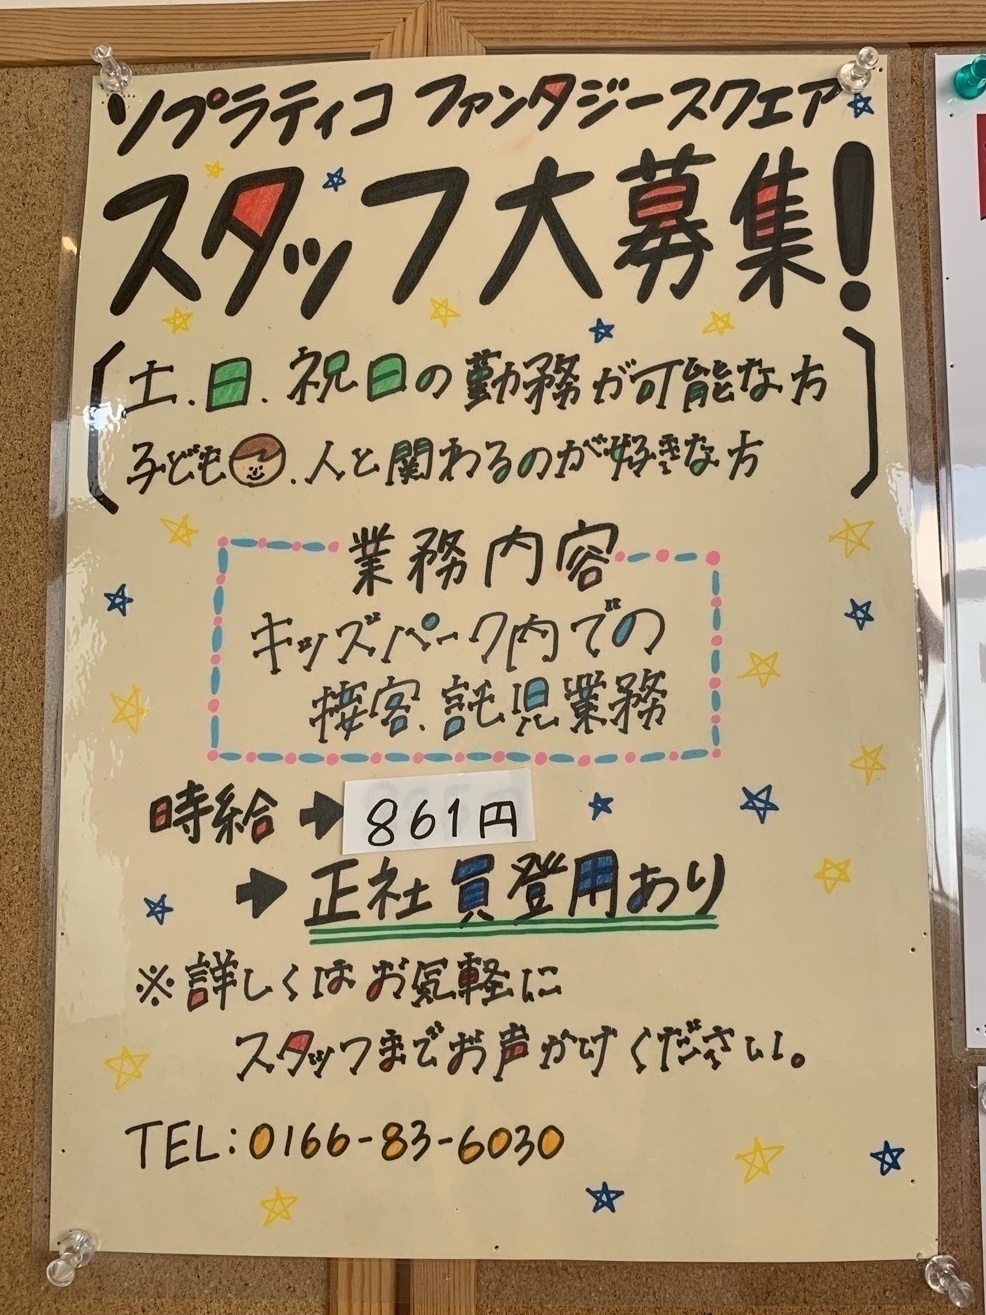 ソプラティコ ファンタジースクエア
スタッフ大募集!
土.日.祝日の勤務が可能な方
子ども.人と関わるのが好きな方
業務内容
キッズパーク内での
接客.託児業務
時給➡861円
➡正社員登用あり
※詳しくはお気軽に
スタッフまでお声かけください。
TEL:0166-83-6030